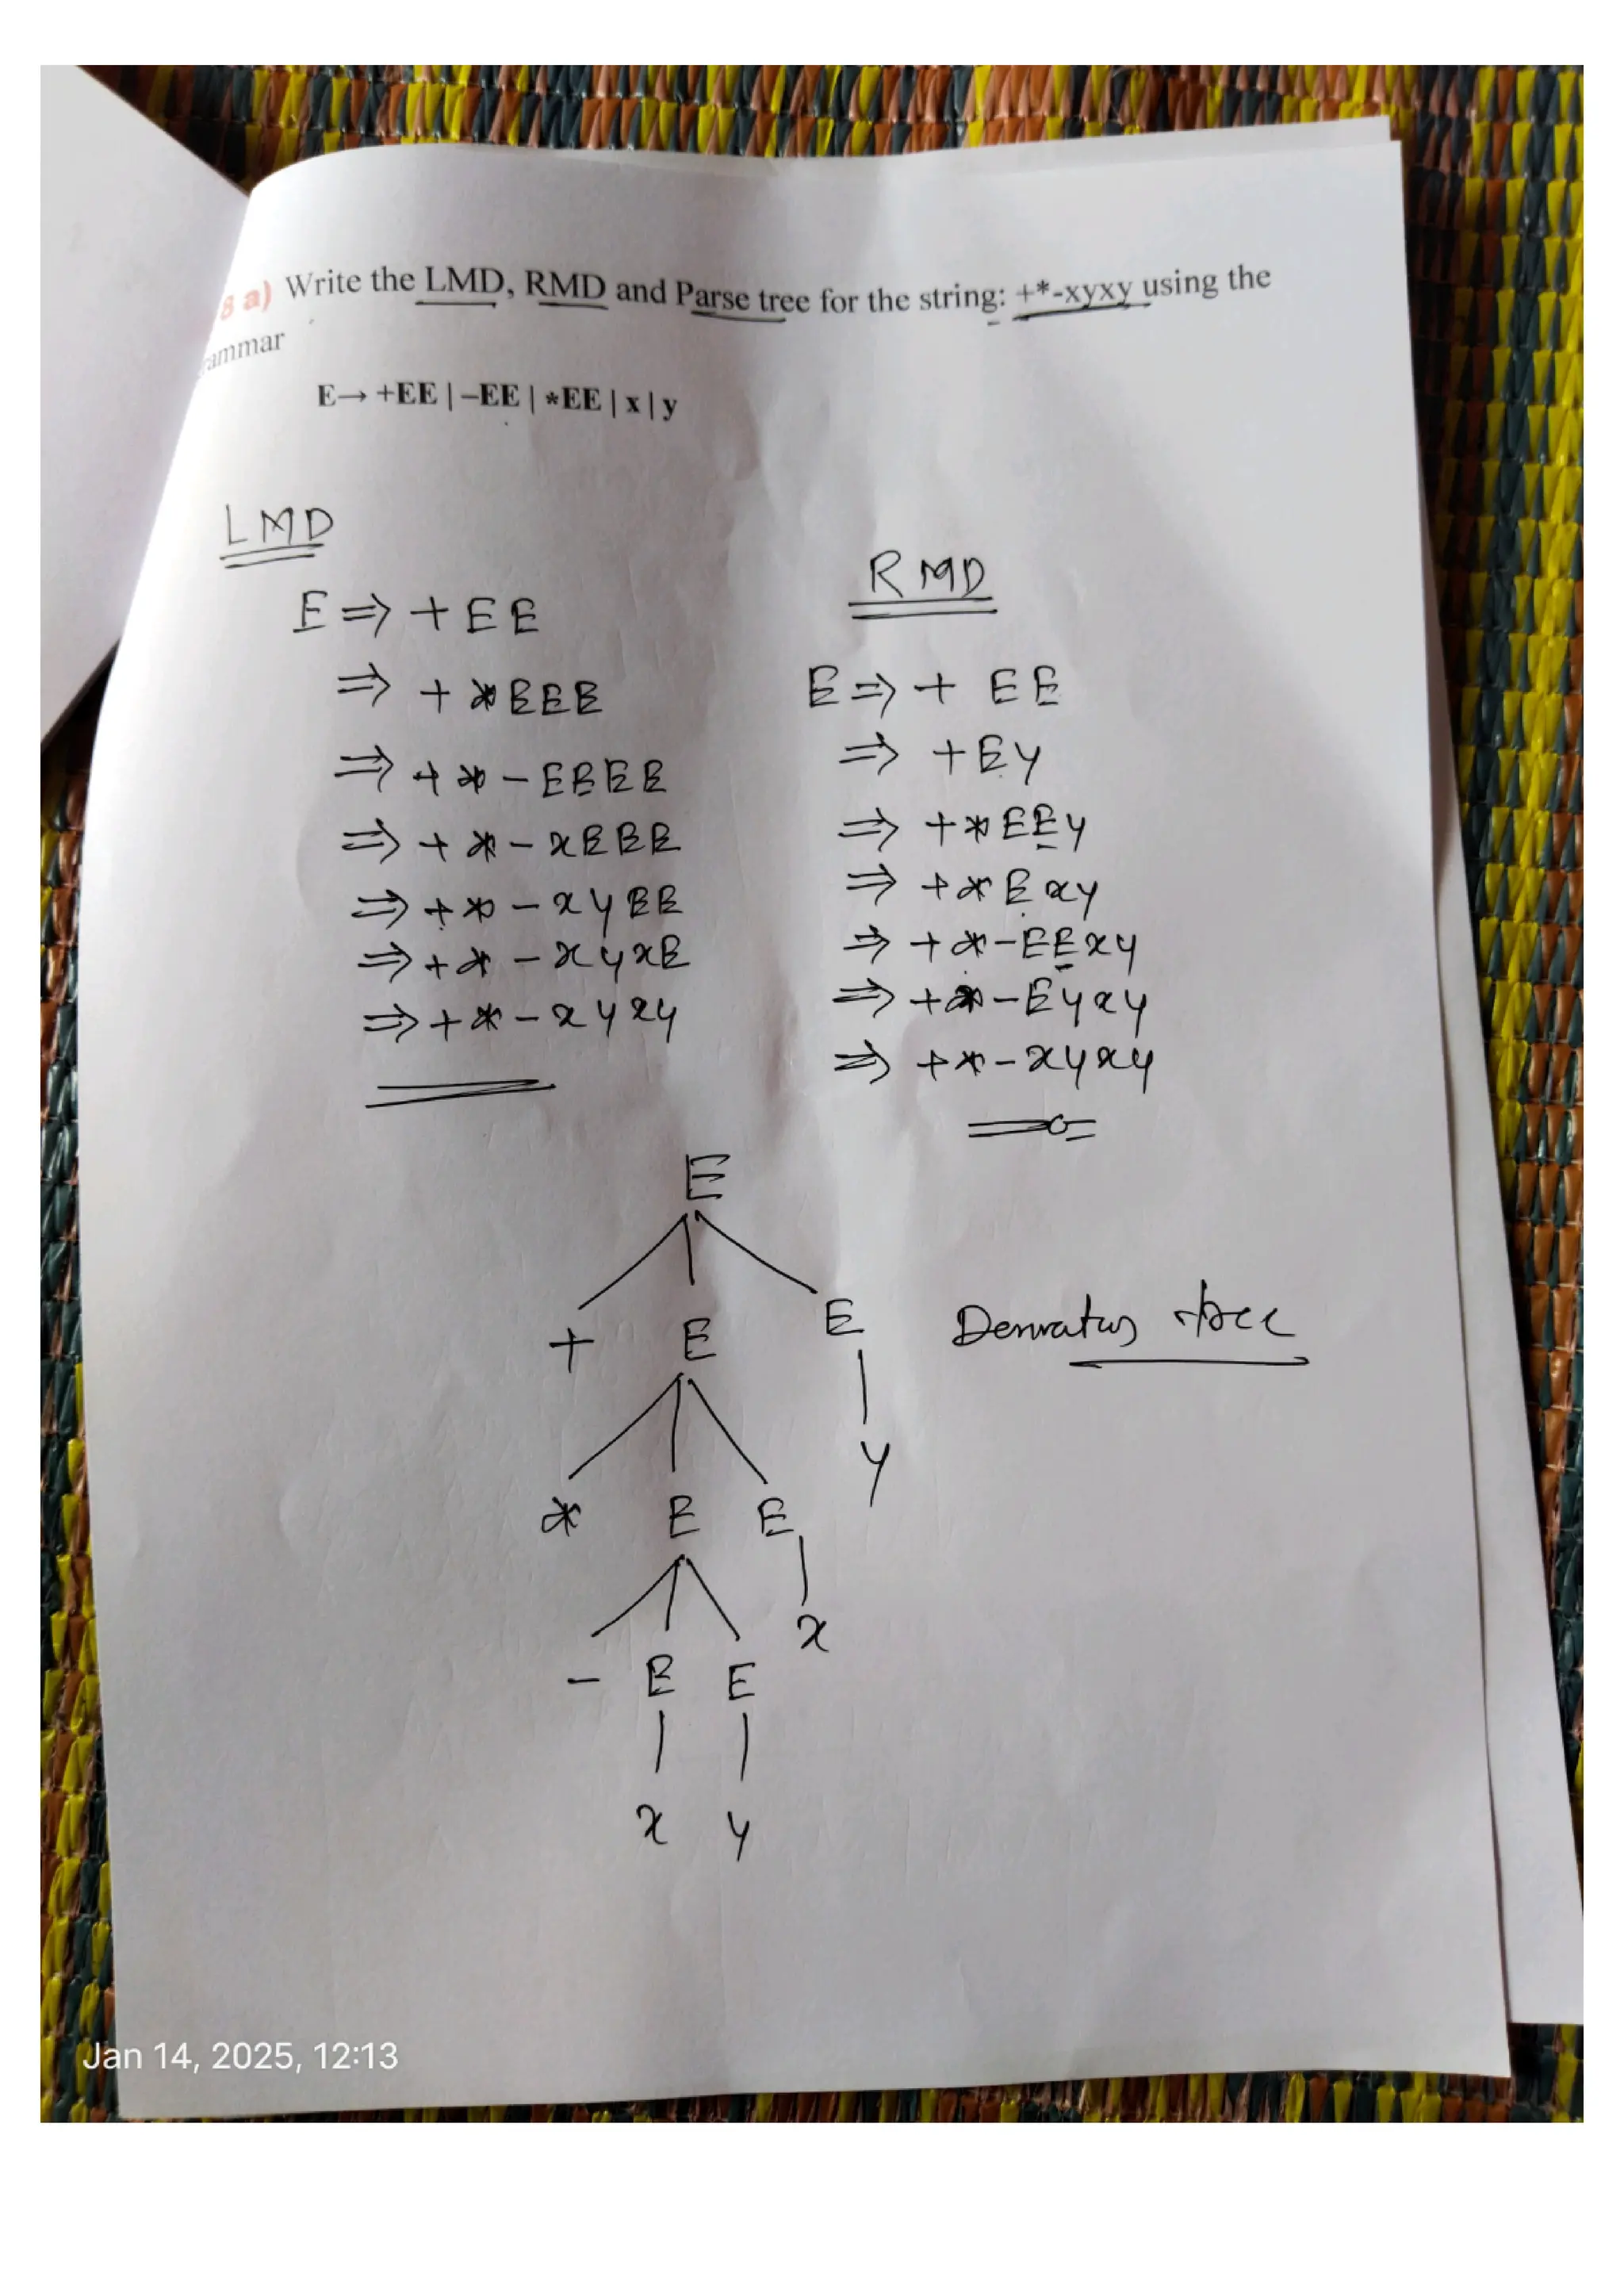 8 a) Write the LMD, RMD and Parse tree for the string: +*-xyxy using the
rammar
E→ +EE | –EE | *EE | x | y
LMD
E ⇒ + E E
⇒ + * E E E
⇒ + * - E E E E
⇒ + * - x E E E
⇒ + * - x y E E
⇒ + * - x y x E
⇒ + * - x y x y
RMD
E ⇒ + E E
⇒ + E y
⇒ + * E E y
⇒ + * E x y
⇒ + * - E E x y
⇒ + * - E y x y
⇒ + * - x y x y
E
+ E E
y
* E E
x
- E E
x y
tree
Jan 14, 2025, 12:13